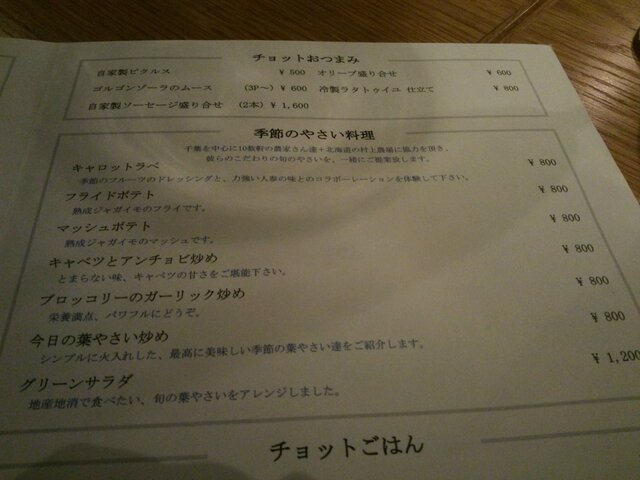 チョットおつまみ
自家製ピクルス ¥ 500 オリーブ盛り合せ ¥ 600
ゴルゴンゾーラのムース (3P～) ¥ 600 冷製ラタトゥイユ 仕立て ¥ 800
自家製ソーセージ盛り合せ (2本) ¥ 1,600
季節のやさい料理
千葉を中心に10数軒の農家さん達+北海道の村上農場に協力を頂き、
彼らのこだわりの旬のやさいを、一緒にご提案致します。
キャロットラペ ¥ 800
季節のフルーツのドレッシングと、力強い人参の味とのコラボレーションを体験して下さい。
フライドポテト ¥ 800
熟成ジャガイモのフライです。
マッシュポテト ¥ 800
熟成ジャガイモのマッシュです。
キャベツとアンチョビ炒め ¥ 800
とまらない味、キャベツの甘さをご堪能下さい。
ブロッコリーのガーリック炒め ¥ 800
栄養満点、パワフルにどうぞ。
今日の葉やさい炒め ¥ 800
シンプルに火入れした、最高に美味しい季節の葉やさい達をご紹介します。
グリーンサラダ ¥ 1,200
地産地消で食べたい、旬の葉やさいをアレンジしました。
チョットごはん